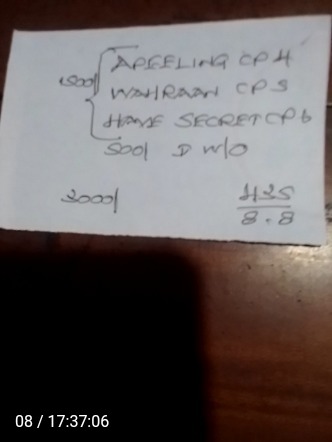 1500/ { APEELING CP 4
WAHRAAN CP 5
HAVE SECRET CP 6
500/ D W/O
2000/
435
8.8
08 / 17:37:06